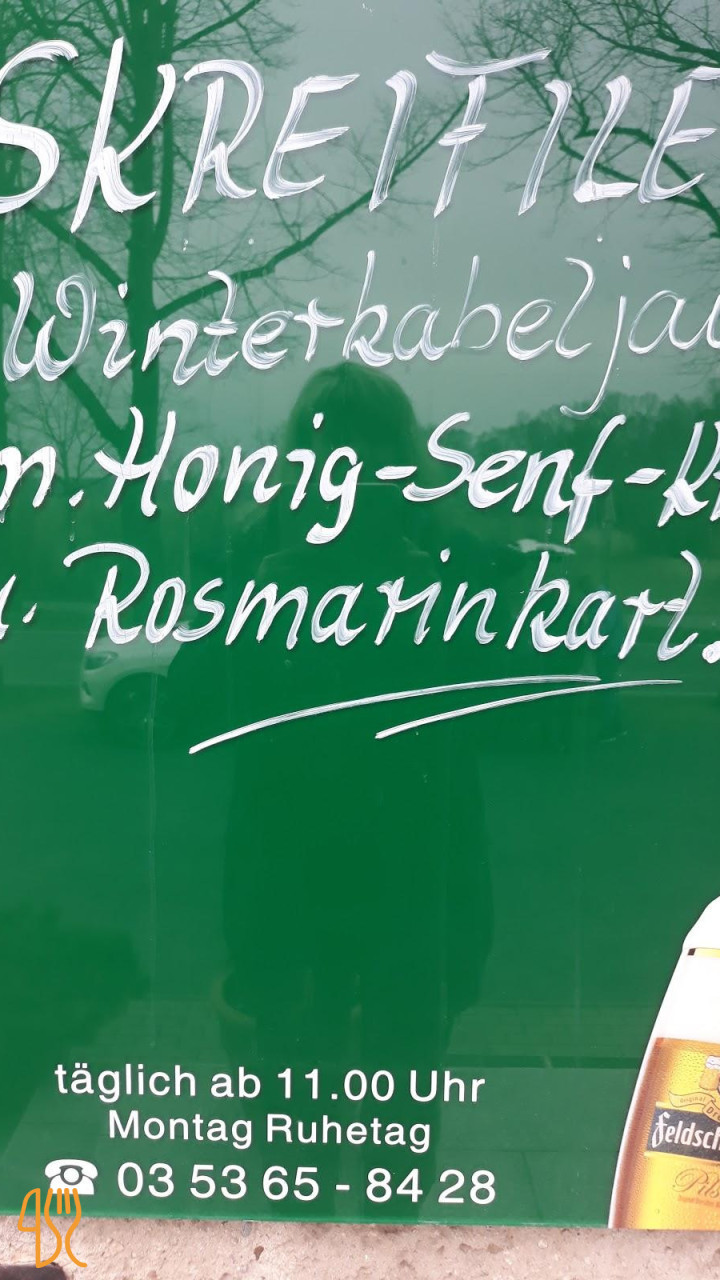 SKREIFILE
Winterkabeljau
m. Honig-Senf-K
u. Rosmarinkart.
täglich ab 11.00 Uhr
Montag Ruhetag
03 53 65 - 84 28
Feldsch
Pils